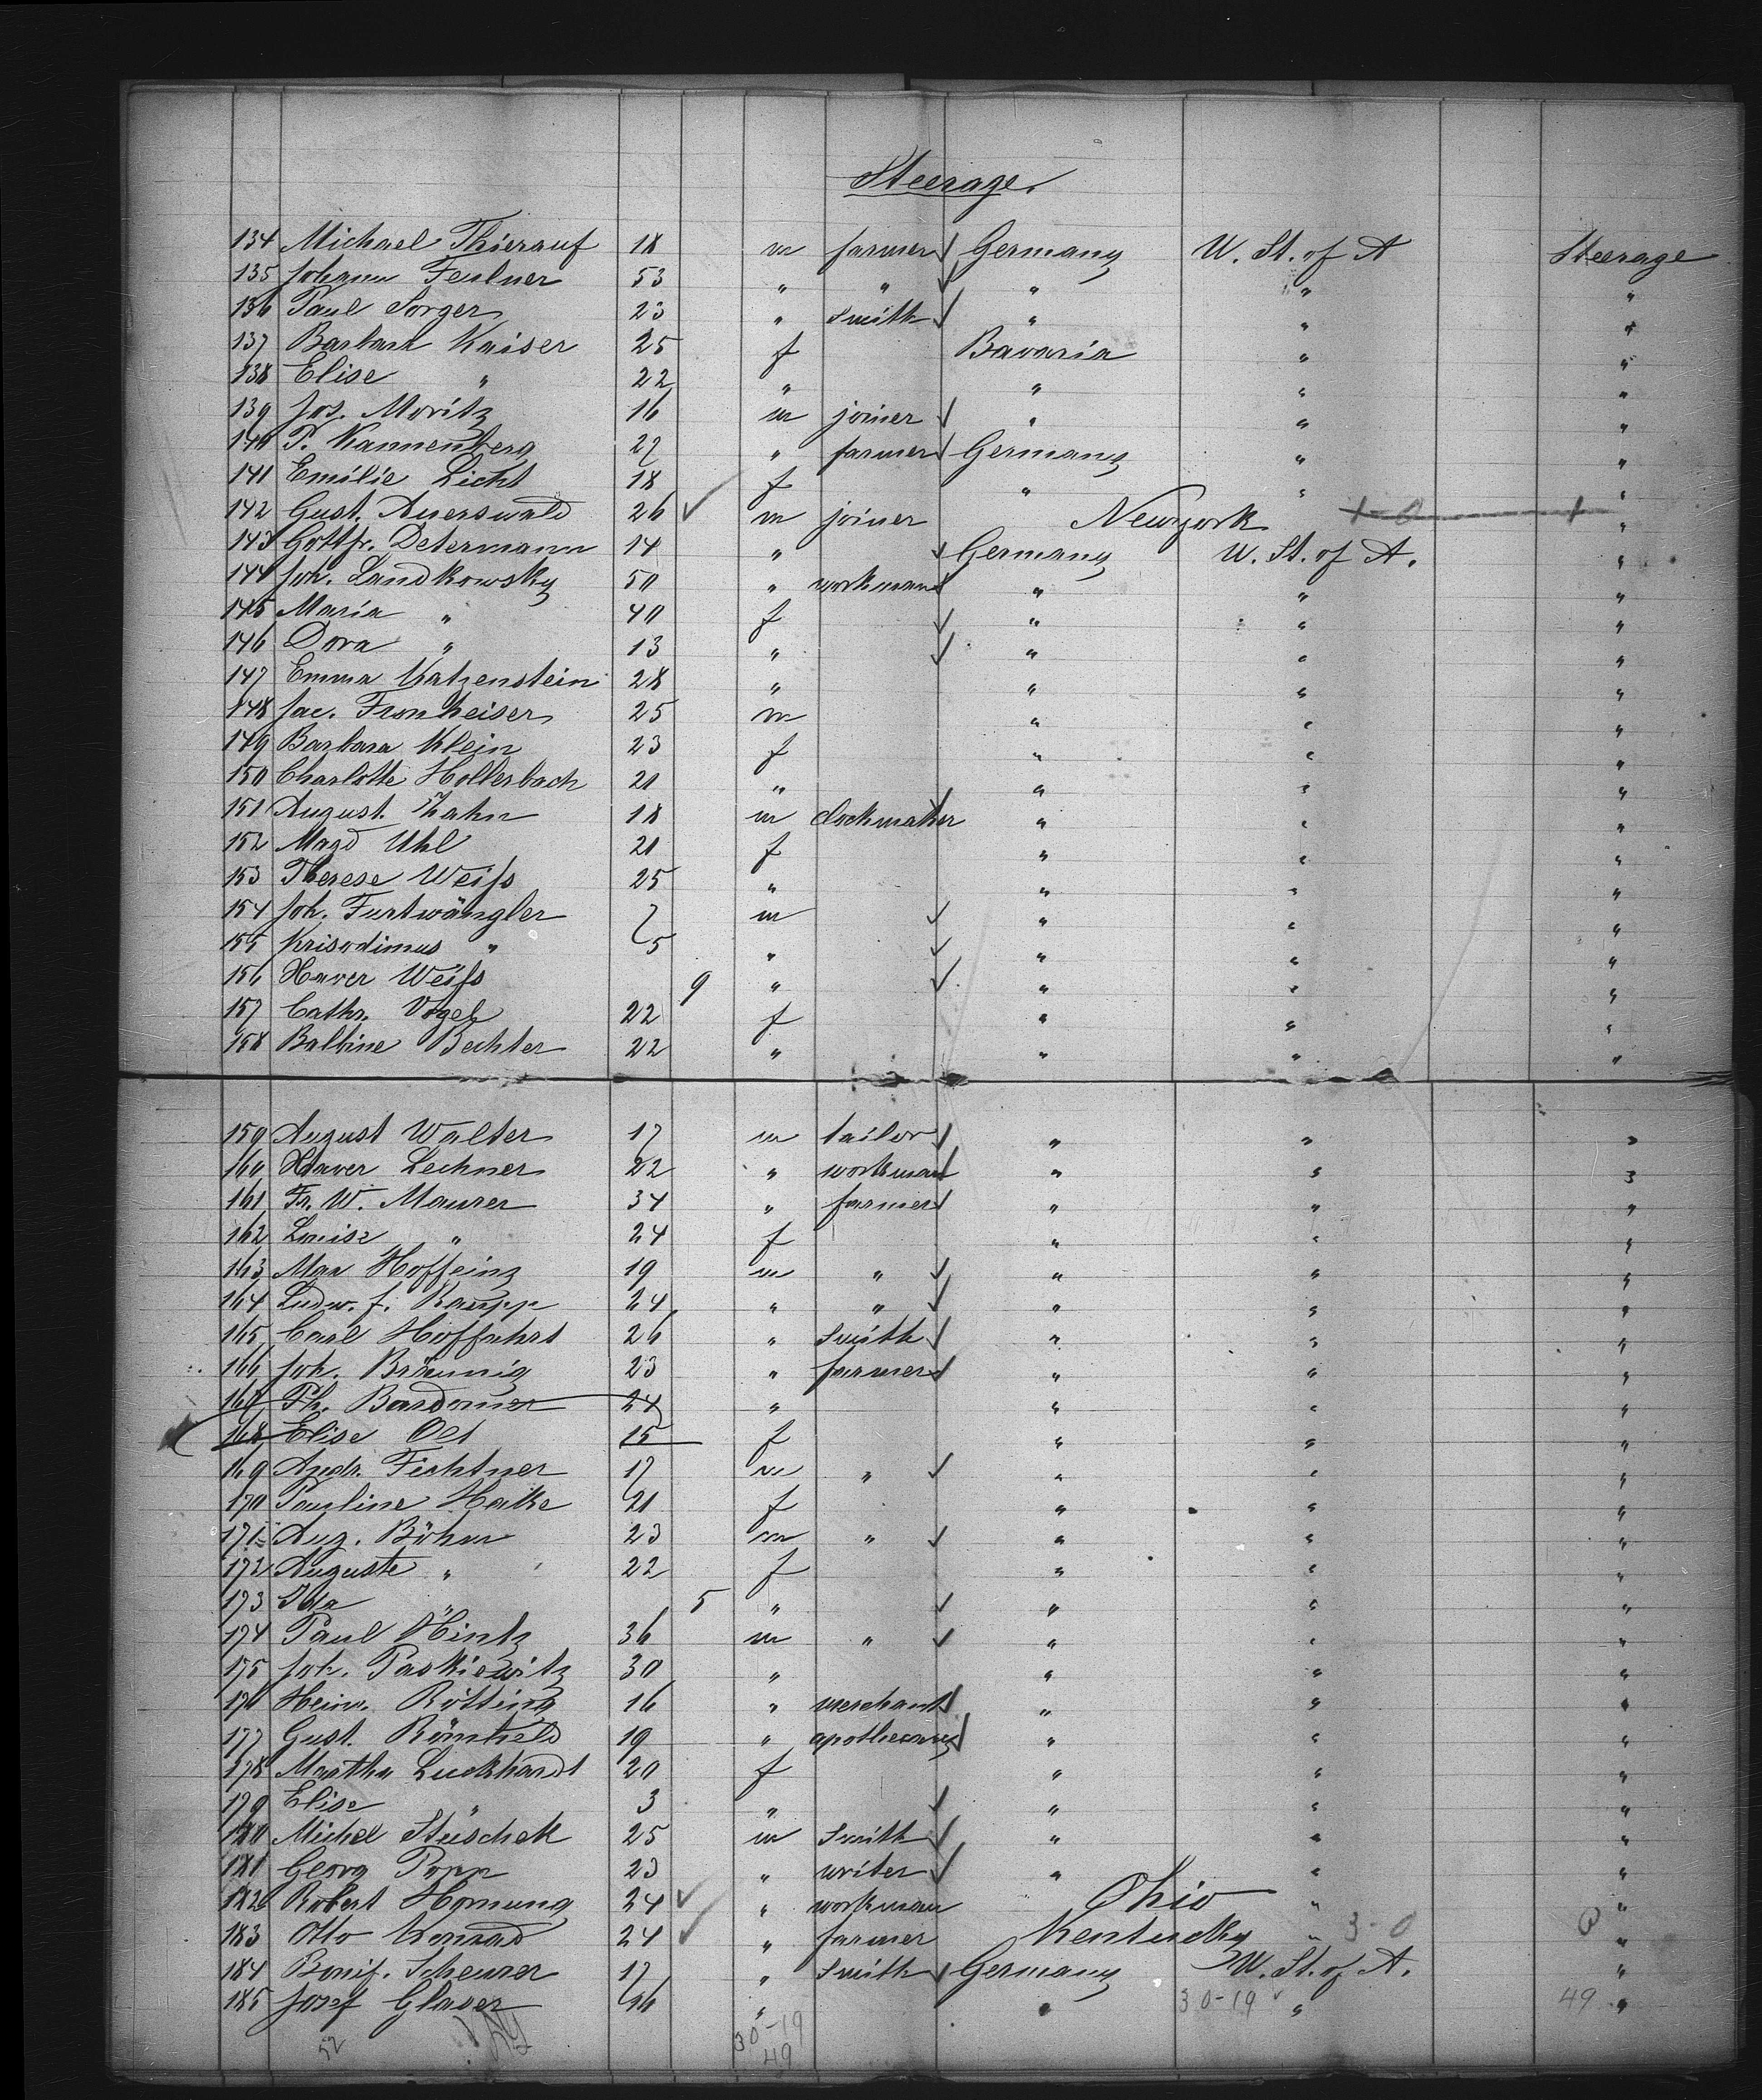 Steerage.
134 Michael Thierauf 18 m farmer Germany U. St. of A Steerage
135 Johann Feulner 53 " " " " "
136 Paul Sorger 23 " Smith " " "
137 Barbara Kaiser 25 f Bavaria " "
138 Elise " 22 " " " "
139 Jos. Moritz 16 m joiner " " "
140 P. Kannenberg 27 " farmer Germany " "
141 Emilie Licht 18 f " " "
142 Gust. Auerswald 26 m joiner Newyork "
143 Gottfr. Determann 14 " Germany U. St. of A. "
144 Joh. Landkowsky 50 " workman " " "
145 Maria " 40 f " " "
146 Dora " 13 " " " "
147 Emma Katzenstein 28 " " " "
148 Jac. Fronheiser 25 m " " "
149 Barbara Klein 23 f " " "
150 Charlotte Hollerbach 21 " " " "
151 August. Zahn 18 m clockmaker " " "
152 Magd Uhl 21 f " " "
153 Therese Weifs 25 " " " "
154 Joh. Furtwängler 7 m " " "
155 Krisodimus " 5 " " " "
156 Xaver Weifs 9 " " " "
157 Cathr. Vogel 22 f " " "
158 Balbine Bechter 22 " " " "
159 August Walter 17 m tailor " " "
160 Xaver Lechner 22 " workman " " "
161 Fr. W. Maurer 34 " farmer " " "
162 Louise " 24 f " " "
163 Max Hoffeinz 19 m " " " "
164 Ludw. J. Raupp 24 " " " " "
165 Carl Hoffahrt 26 " Smith " " "
166 Joh. Bräunig 23 " farmer " " "
167 Ph. 24 " " " "
168 Elise Oet 15 f " " "
169 Andr. Fichtner 17 m " " " "
170 Pauline Hake 21 f " " "
171 Aug. Böhm 23 m " " " "
172 Auguste " 22 f " " "
173 Ida " 5 " " " "
174 Paul Hintz 36 m " " " "
175 Joh. Paskiewitz 30 " " " "
176 Heinr. Rötting 16 " merchant " " "
177 Gust. 19 " apothecary " " "
178 Martha Luckhardt 20 f " " "
179 Elise " 3 " " " "
180 Michel Stuschek 25 m Smith " " "
181 Georg Popp 23 " writer " " "
182 Robert Hornung 24 " workman Ohio " "
183 Otto Konrad 24 " farmer Kentucky " 3-0 "
184 Bonif. Scheurer 17 " Smith Germany U. St. of A. "
185 Josef Glaser 46 " " 30-19 " 49 "
52 30-19
49